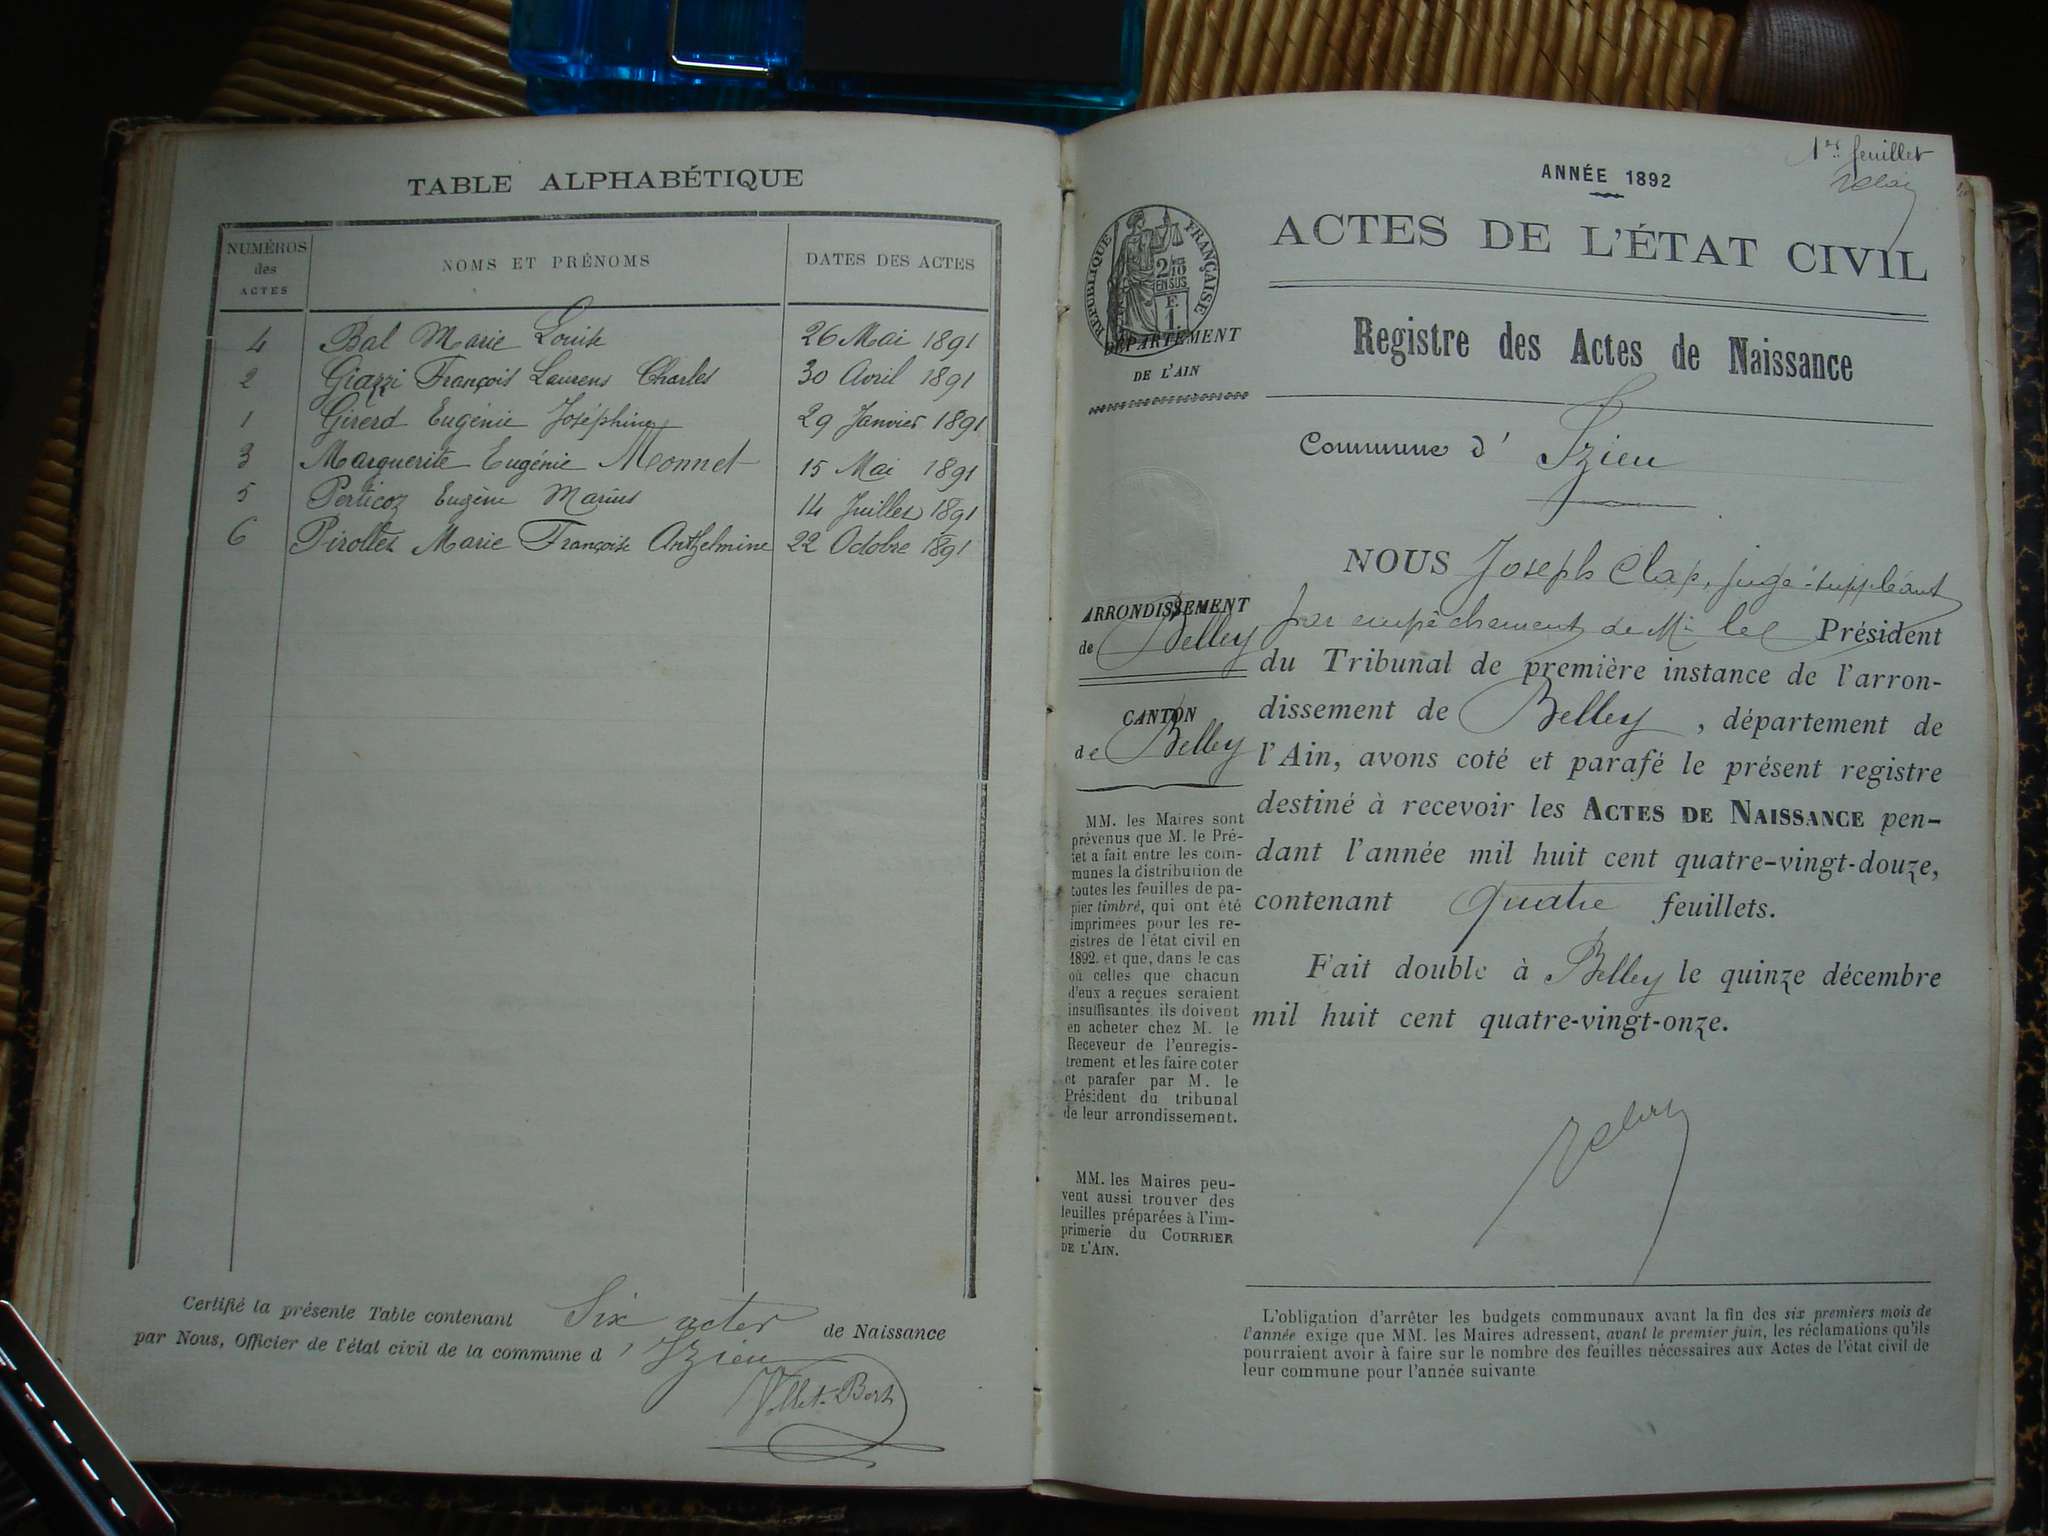 TABLE ALPHABÉTIQUE
NUMÉROS des ACTES NOMS ET PRÉNOMS DATES DES ACTES
4 Bal Marie Louise 26 Mai 1891
2 Giazzi François Laurens Charles 30 Avril 1891
1 Girerd Eugénie Joséphine 29 Janvier 1891
3 Marguerite Eugénie Monnet 15 Mai 1891
5 Perticoz Eugène Marius 14 Juillet 1891
6 Pirollet Marie Françoise Anthelmine 22 Octobre 1891
Certifié la présente Table contenant Six actes de Naissance
par Nous, Officier de l'état civil de la commune d'Izieu
Vollet-Bert
1er feuillet
ANNÉE 1892
ACTES DE L'ÉTAT CIVIL
RÉPUBLIQUE FRANÇAISE
2/10
EN SUS
F.
1.
DÉPARTEMENT
DE L'AIN
ARRONDISSEMENT
de Belley
CANTON
de Belley
MM. les Maires sont
prévenus que M. le Pré-
fet a fait entre les com-
munes la distribution de
toutes les feuilles de pa-
pier timbré, qui ont été
imprimées pour les re-
gistres de l'état civil en
1892. et que, dans le cas
où celles que chacun
d'eux a reçues seraient
insuffisantes ils doivent
en acheter chez M. le
Receveur de l'enregis-
trement et les faire coter
et parafer par M. le
Président du tribunal
de leur arrondissement.
MM. les Maires peu-
vent aussi trouver des
feuilles préparées à l'im-
primerie du COURRIER
DE L'AIN.
Registre des Actes de Naissance
Commune d' Izieu
NOUS Joseph Clap, juge-suppléant
par empêchement de Mr le Président
du Tribunal de première instance de l'arron-
dissement de Belley, département de
l'Ain, avons coté et parafé le présent registre
destiné à recevoir les ACTES DE NAISSANCE pen-
dant l'année mil huit cent quatre-vingt-douze,
contenant Quatre feuillets.
Fait double à Belley le quinze décembre
mil huit cent quatre-vingt-onze.
L'obligation d'arrêter les budgets communaux avant la fin des six premiers mois de
l'année exige que MM. les Maires adressent, avant le premier juin, les réclamations qu'ils
pourraient avoir à faire sur le nombre des feuilles nécessaires aux Actes de l'état civil de
leur commune pour l'année suivante